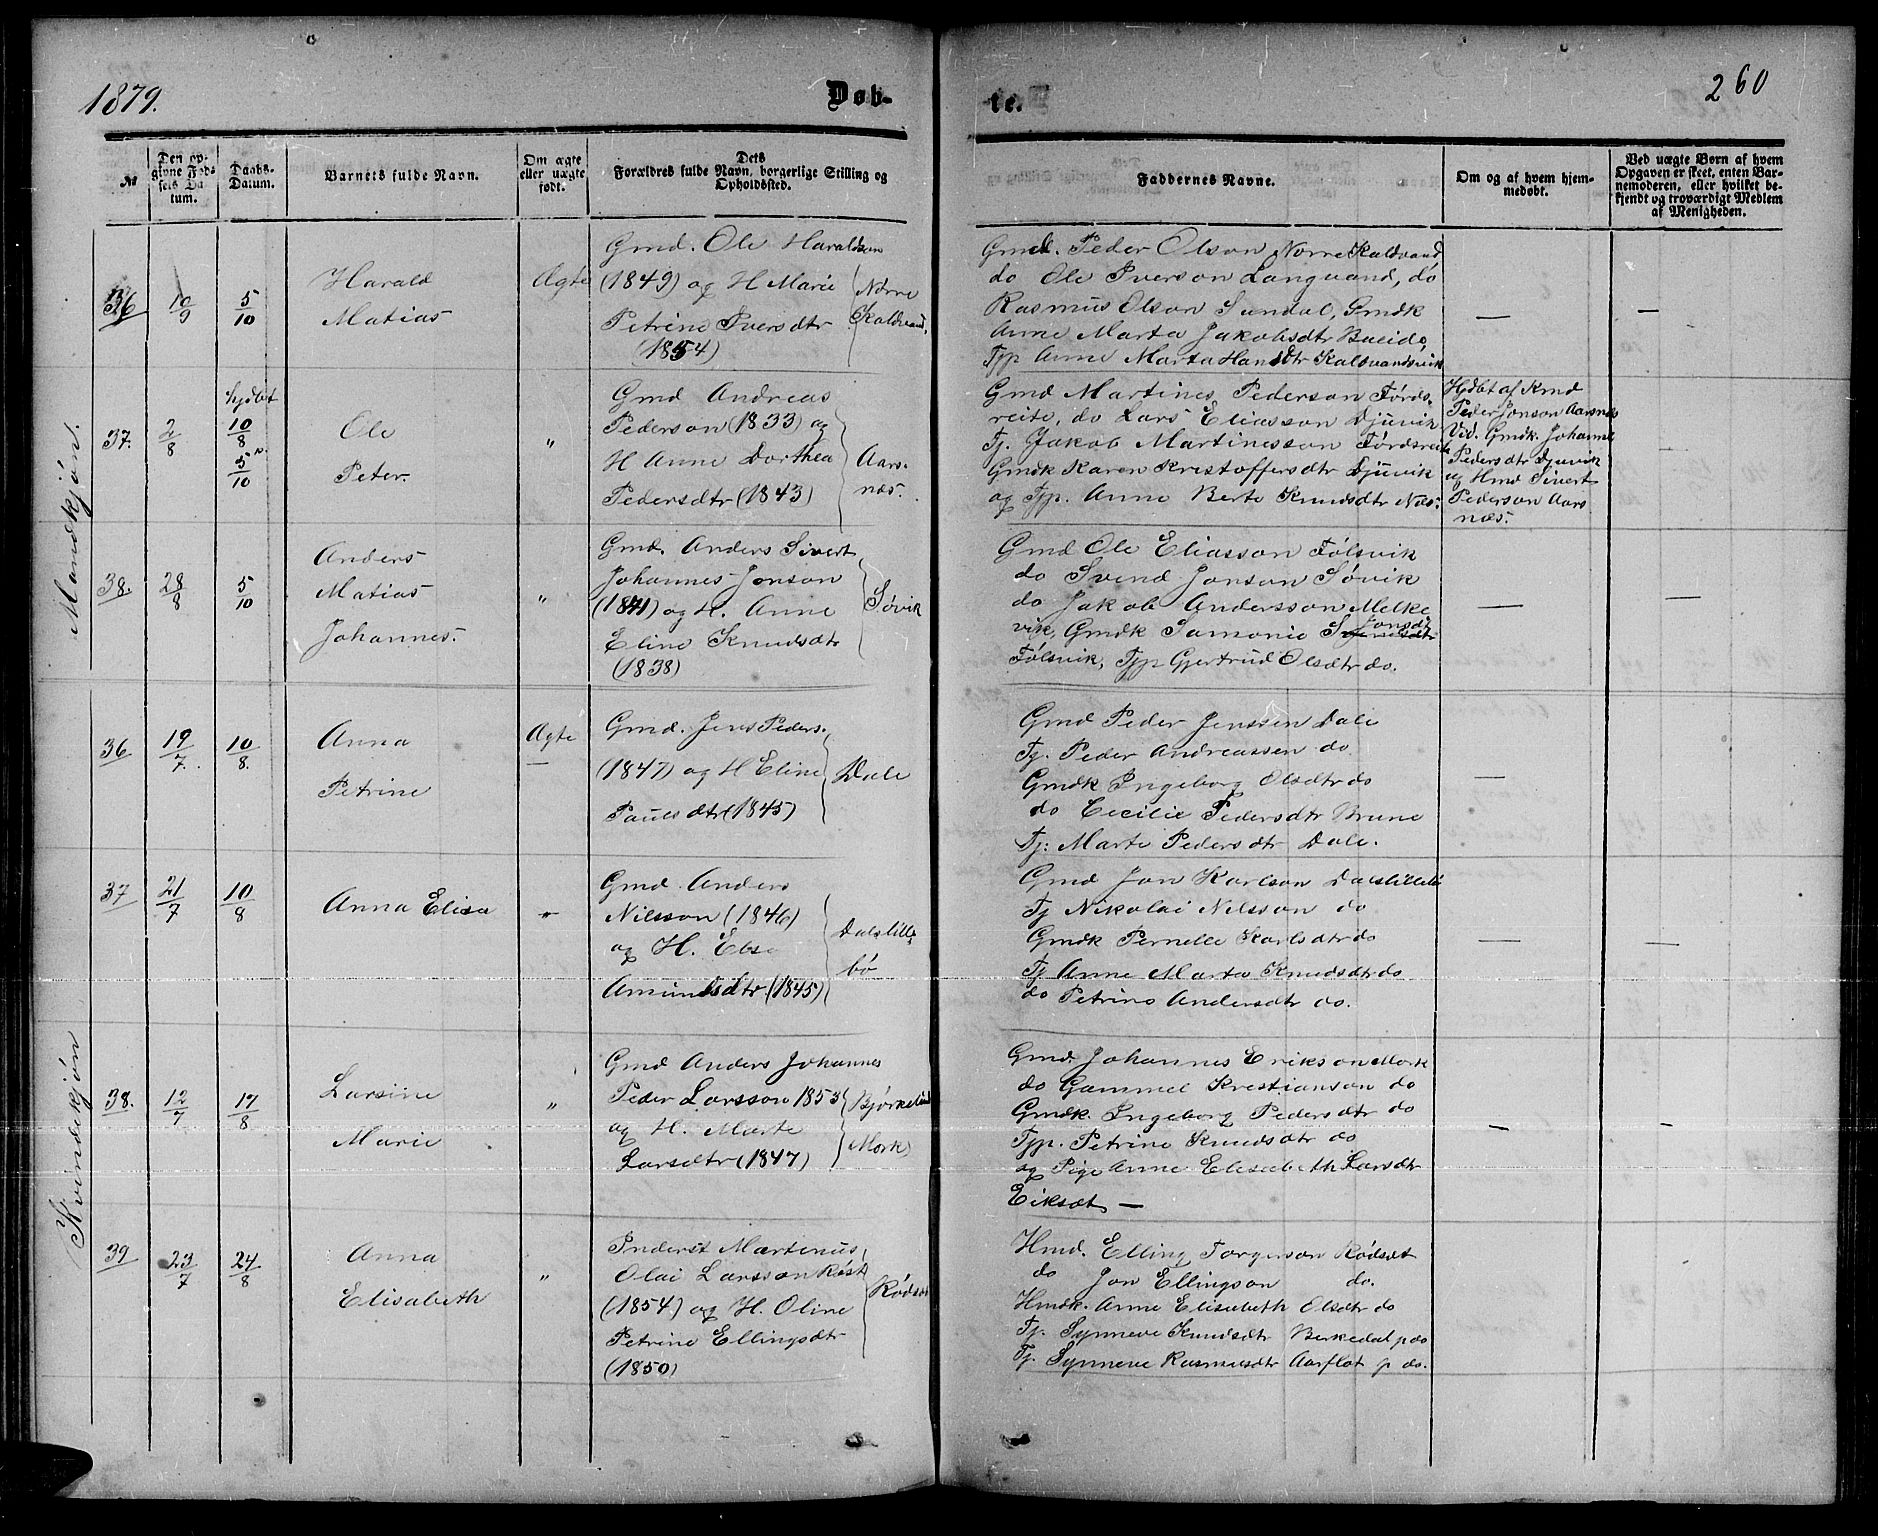 1879.
Døb-
te.
260
№
Den op-
givne Fød-
sels Da-
tum.
Daabs-
Datum.
Barnets fulde Navn.
Om ægte
eller uægte
født.
Dets
Forældres fulde Navn, borgerlige Stilling og
Opholdssted.
Faddernes Navne.
Om og af hvem hjem-
medøbt.
Ved uægte Børn af hvem
Opgaven er skeet, enten Bar-
nemoderen, eller hvilket be-
kjendt og troværdigt Medlem
af Menigheden.
Mandkjøn.
36
10/9
5/10
Harald
Matias
Ægte
Gmd. Ole Haraldson
(1849) og H Marie
Petrine Iversdtr
(1854)
Nørre
Kaldvand,
Gmd. Peder Olson Nørre Kaldvand
do Ole Iverson Langvand, do
Rasmus Olson Sundal, Gmdk
Anne Marta Jakobsdtr Bueide,
Tjp Anne Marta Hansdtr Kaldvandsvik
—
—
37.
2/8
hjdbt
10/8
5/10
Ole
Peter.
"
Gmd Andreas
Pederson (1833) og
H Anne Dorthea
Pedersdtr (1843)
Aars-
næs.
Gmd Martines Pederson Førds-
reite, do Lars Eliasson Djuvik
Tj. Jakob Martinesson Førdsreite
Gmdk Karen Kristoffersdtr Djuvik
og Tjp. Anne Berte Knudsdtr Næs.
Hjdbt af Kmd
Peder Jonson Aarsnæs
Vid. Gmdk. Johanne
Pedersdtr Djuvik
og Hmd Sivert
Pederson Aars
næs.
—
38.
28/8
5/10
Anders
Matias
Johannes.
"
Gmd. Anders Sivert
Johannes Jonson
(1841) og H. Anne
Eline Knudsdtr
(1838)
Søvik
Gmd Ole Eliasson Følsvik
do Svend Jonson Søvik
do Jakob Andersson Melke
Jonsdtr
vik, Gmdk Samonie
Følsvik, Tjp Gjertrud Olsdtr do.
—
—
Kvindekjøn
36
19/7.
10/8.
Anna
Petrine
Ægte
—
Gmd. Jens Peders.
(1847) og H Eline
Paulsdtr (1845)
Dale
Gmd Peder Jenssen Dale
Tj. Peder Andreassen do
Gmdk Ingeborg Olsdtr do
do Cecilie Pedersdtr Brune
Tj: Marte Pedersdtr Dale.
—
37
21/7
10/8
Anna Elisa
"
Gmd. Anders
Nilsson (1846)
og H. Else
Amundsdtr (1845)
Dalslille
bø
Gmd Jon Karlson Dalslillebø
Tj Nikolai Nilsson do
Gmdk Pernelle Karlsdtr do
Tj Anne Marta Knudsdtr do
do Petrine Andersdtr do.
—
—
38.
12/7
17/8
Larsine
Marie
"
Gmd Anders Johannes
Peder Larsson 1853
og H. Marte
Larsdtr (1847)
Bjørkelund
(Mork)
Gmd. Johannes Erikson Mork
do Gammel Kristianson do
Gmdk. Ingeborg Pedersdtr do
Tjp. Petrine Knudsdtr do
og Pige Anne Elisabeth Larsdtr
Eiksæt —
—
—
39
23/7
24/8
Anna
Elisabeth
"
Inderst Martinus
Olai Larsson Røst
(1854) og H. Oline
Petrine Ellingsdtr
(1850)
Rødsæt
Hmd. Elling Torgerson Rødsæt
do Jon Ellingson do.
Hmdk. Anne Elisabeth Olsdtr do
Tj. Synneve Knudsdtr Berkedal p do
Tj. Synneve Rasmusdtr Aarflot p do.